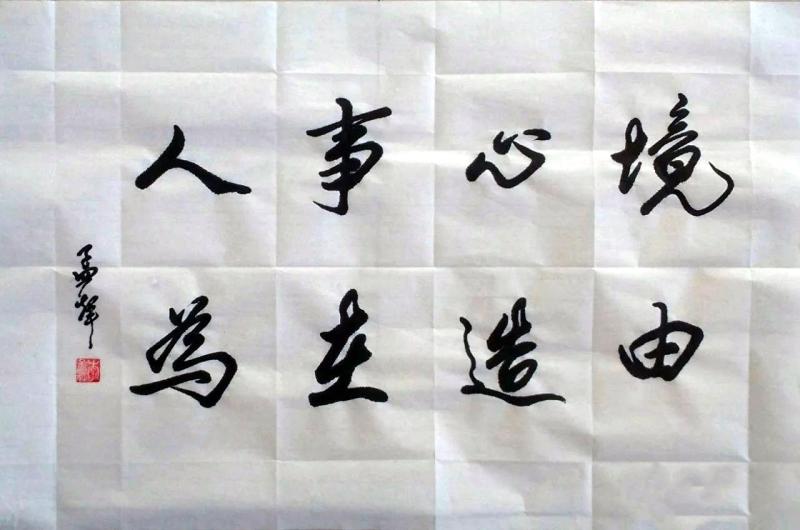 境由
心造
事在
人為